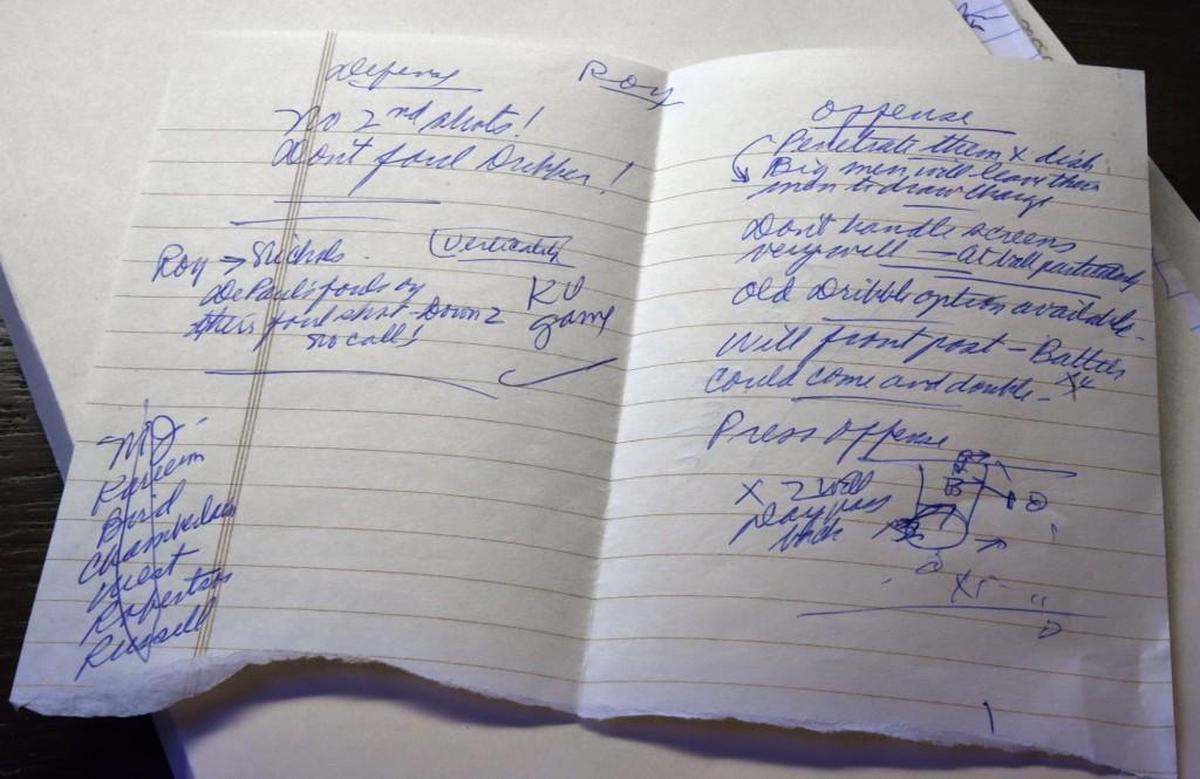 Defense
Roy
No 2nd shots!
Don't foul Dribbler!
Roy → Nichols.
Verticality
DePaul's fouls
KU
their foul shot - Down 2
game
no call!
MJ
Kareem
Bird
Chamberlain
West
Robertson
Russell
Offense
Penetrate them & dish
Big men will leave their
man to draw charge
Don't handle screens
very well — At will particularly
Old Dribble option available.
Will front post - Battier
could come and double - X4
Press Offense
X 2 will
play pass
back
X5